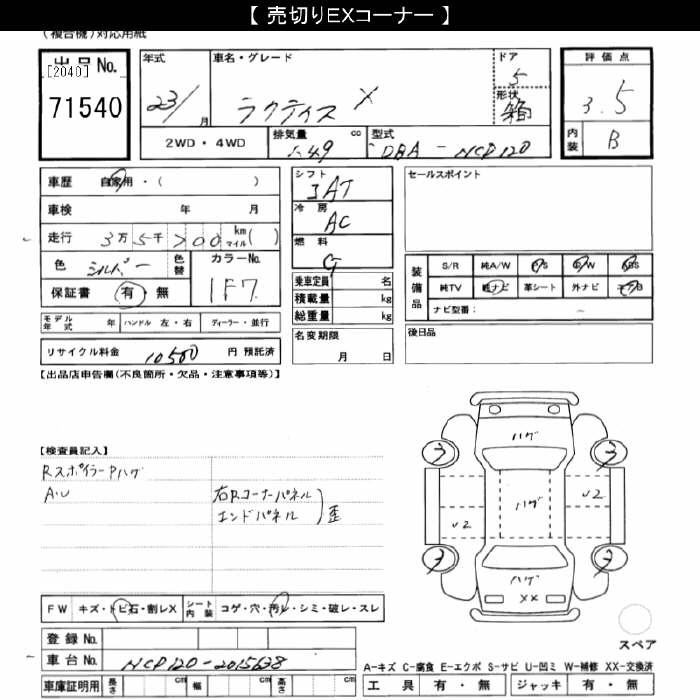 【 売切りEXコーナー 】
(複合機)対応用紙
出品No.
[2040]
71540
年式
23/
月
車名・グレード
ラクティス X
ドア
5
形状
箱
評価点
3.5
内装
B
2WD・4WD
排気量
cc
1.49
型式
DBA - NCP120
車歴 自家用・( )
車検 年 月
走行 3万5千700 kmマイル( )
色 シルバー 色替
カラーNo.
1F7
保証書 有・無
モデル年式 年 ハンドル 左・右 ディーラー・並行
リサイクル料金 10500 円 預託済
シフト
IAT
冷房
AC
燃料
G
乗車定員 名
積載量 kg
総重量 kg
名変期限
月 日
セールスポイント
装備品
S/R 純A/W P/S P/W ABS
純TV 純ナビ 革シート 外ナビ エアB
ナビ型番: ~
後日品
【出品店申告欄(不良箇所・欠品・注意事項等)】
【検査員記入】
Rスポイラー Pハゲ
A・U
右Rコーナーパネル
エンドパネル
歪
ハゲ
3 3
ハゲ
U2
U2
3 3
ハゲ
XX
スペア
FW キズ・トビ石・割レX シート内装 コゲ・穴・汚レ・シミ・破レ・スレ
登録No.
車台No. NCP120-2015638
車庫証明用 長さ cm 幅 cm 高さ cm
A-キズ C-腐食 E-エクボ S-サビ U-凹ミ W-補修 XX-交換済
工具 有・無 ジャッキ 有・無